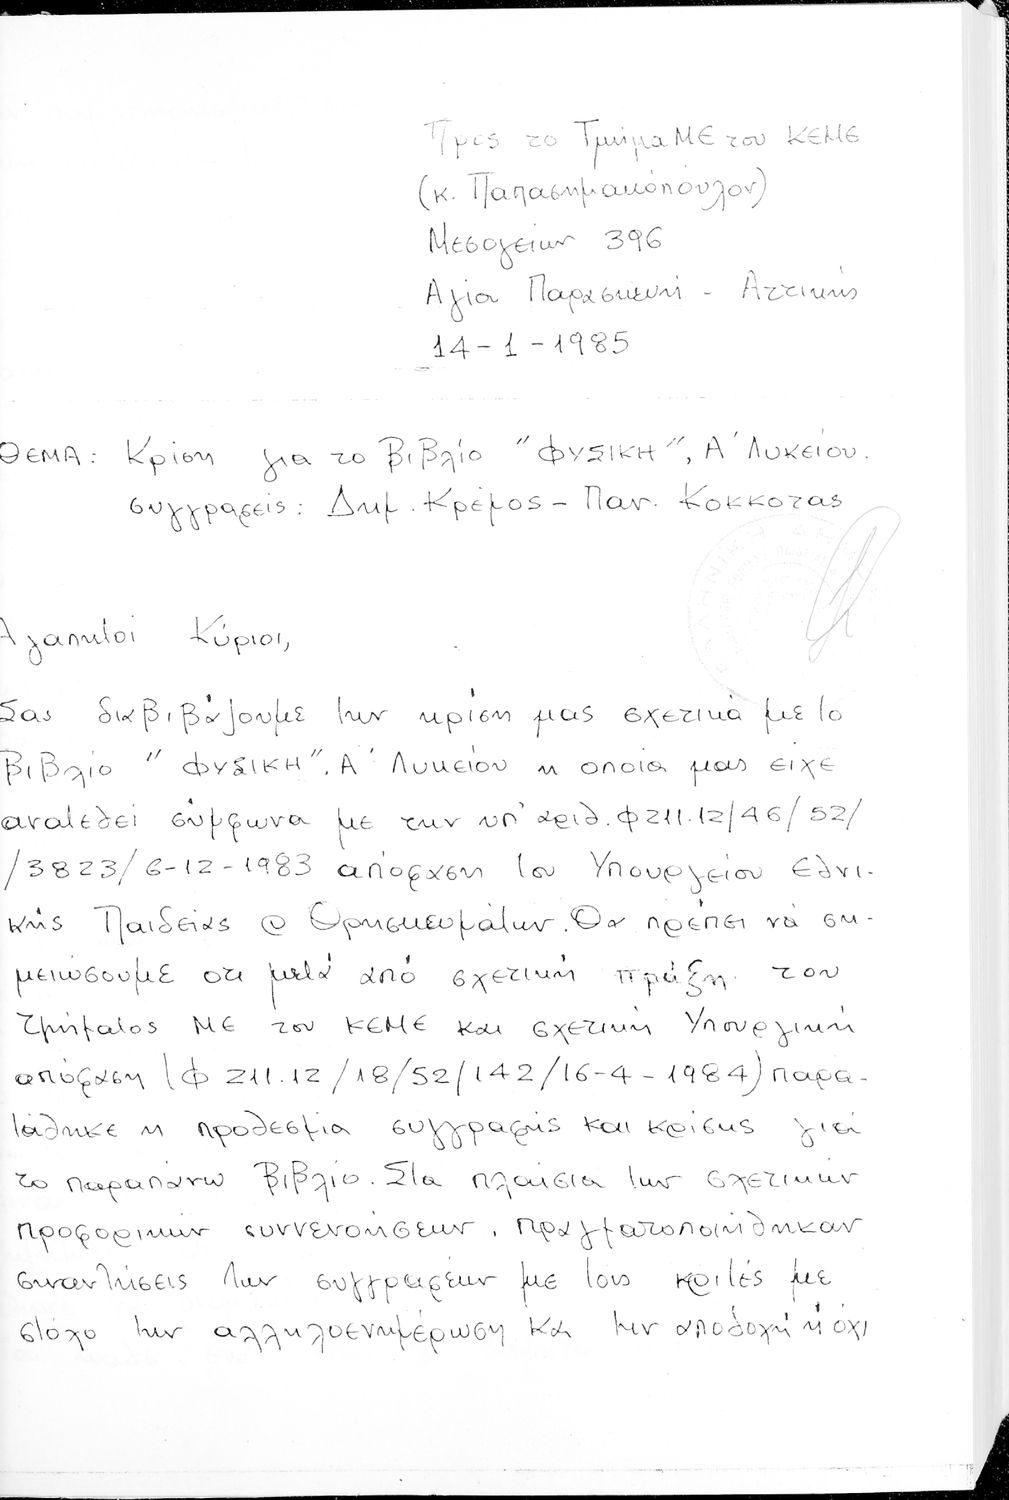 Προς το Τμήμα ΜΕ του ΚΕΜΕ
(κ. Παπασημακόπουλον)
Μεσογείων 396
Αγία Παρασκευή - Αττικής
14-1-1985
ΘΕΜΑ: Κρίση για το Βιβλίο "ΦΥΣΙΚΗ", Α' Λυκείου.
συγγραφείς: Δημ. Κρέμος - Παν. Κόκκοτας
Αγαπητοί Κύριοι,
Σας διαβιβάζουμε την κρίση μας σχετικά με το
Βιβλίο "ΦΥΣΙΚΗ", Α' Λυκείου η οποία μας είχε
ανατεθεί σύμφωνα με την υπ' αριθ. Φ211.12/46/52/
/3823/6-12-1983 απόφαση του Υπουργείου Εθνι-
κής Παιδείας & Θρησκευμάτων. Θα πρέπει νά ση-
μειώσουμε οτι μετά από σχετική πράξη του
Τμήματος ΜΕ του ΚΕΜΕ και σχετική Υπουργική
απόφαση (Φ 211.12/18/52/142/16-4-1984) παρα-
τάθηκε η προθεσμία συγγραφής και κρίσης γιά
το παραπάνω Βιβλίο. Στα πλαίσια των σχετικών
προφορικών συννενοήσεων, πραγματοποιήθηκαν
συναντήσεις των συγγραφέων με τους κριτές με
στόχο την αλληλοενημέρωση και την αποδοχή ή όχι